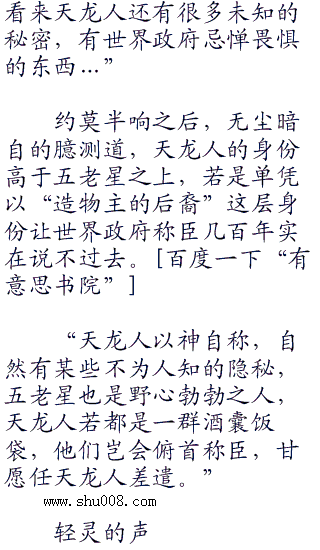 看来天龙人还有很多未知的
秘密，有世界政府忌惮畏惧
的东西…”
约莫半响之后，无尘暗
自的臆测道，天龙人的身份
高于五老星之上，若是单凭
以“造物主的后裔”这层身
份让世界政府称臣几百年实
在说不过去。[百度一下“有
意思书院”]
“天龙人以神自称，自
然有某些不为人知的隐秘，
五老星也是野心勃勃之人，
天龙人若都是一群酒囊饭
袋，他们岂会俯首称臣，甘
愿任天龙人差遣。”
www.shu008.com
轻灵的声